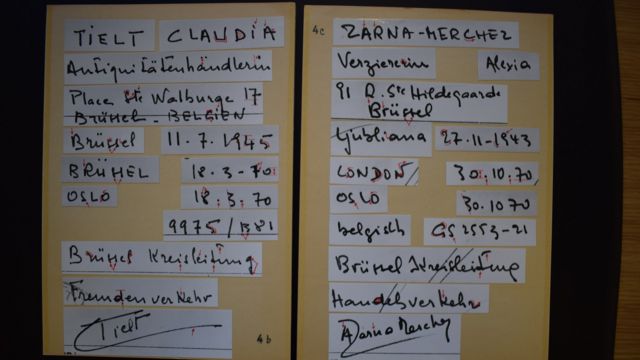 TIELT CLAUDIA
Antiquitätenhändlerin
Place Ste Walburge 17
BRÜSSEL - BELGIEN
Brüssel 11.7.1945
BRÜSSEL 18.3-70
OSLO 18.3.70
9975/B81
Brüssel Kreisleitung
Fremdenverkehr
Tielt
4b
4c
ZARNA-MERCHEZ
Verziererin Alexia
91 R. Ste Hildegaarde
Brüssel
Ljubliana 27.11-1943
LONDON 30.10.70
OSLO 30.1070
belgisch GS 2553-21
Brüssel Kreisleitung
Handelsverkehr
AZarna Merchez